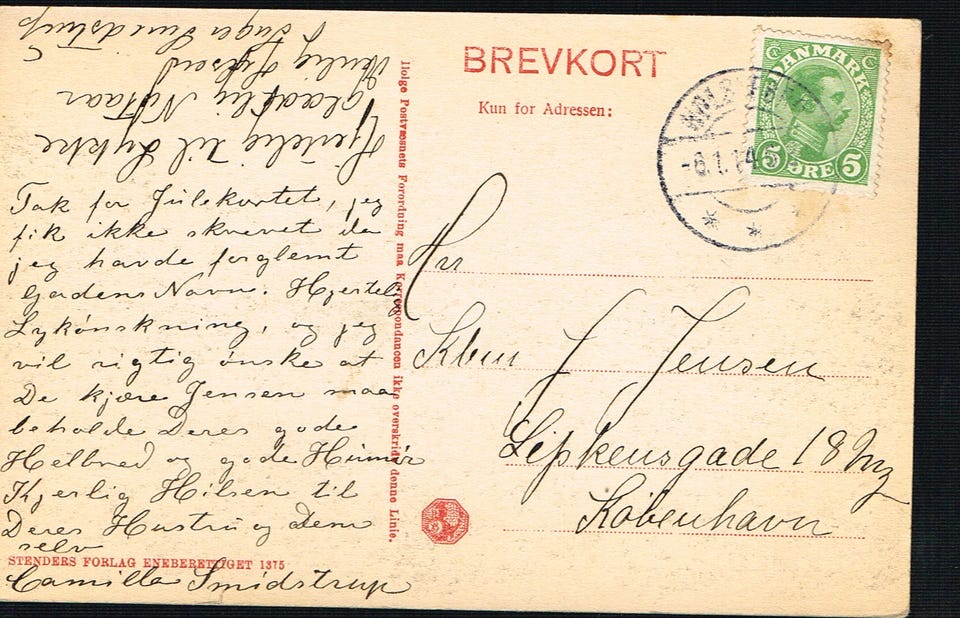 Hjertelig til Lykke
glædelig Nytaar
Venlig Hilsen
Inger Smidstrup
Tak for Julekortet, jeg
fik ikke skrevet da
jeg havde forglemt
Gadens Navn. Hjertelig
Lykønskning, og jeg
vil rigtig ønske at
De kjære Jensen maa
beholde Deres gode
Helbred og gode Humør
Kjerlig Hilsen til
Deres Hustru og Dem
selv
Camilla Smidstrup
STENDERS FORLAG ENEBERETTIGET 1375
Ifølge Postvæsnets Forordning maa Korrespondancen ikke overskride denne Linie.
BREVKORT
Kun for Adressen:
DANMARK
5 ØRE 5
-8.1.14
Hr
J Jensen
Lipkesgade 18
København